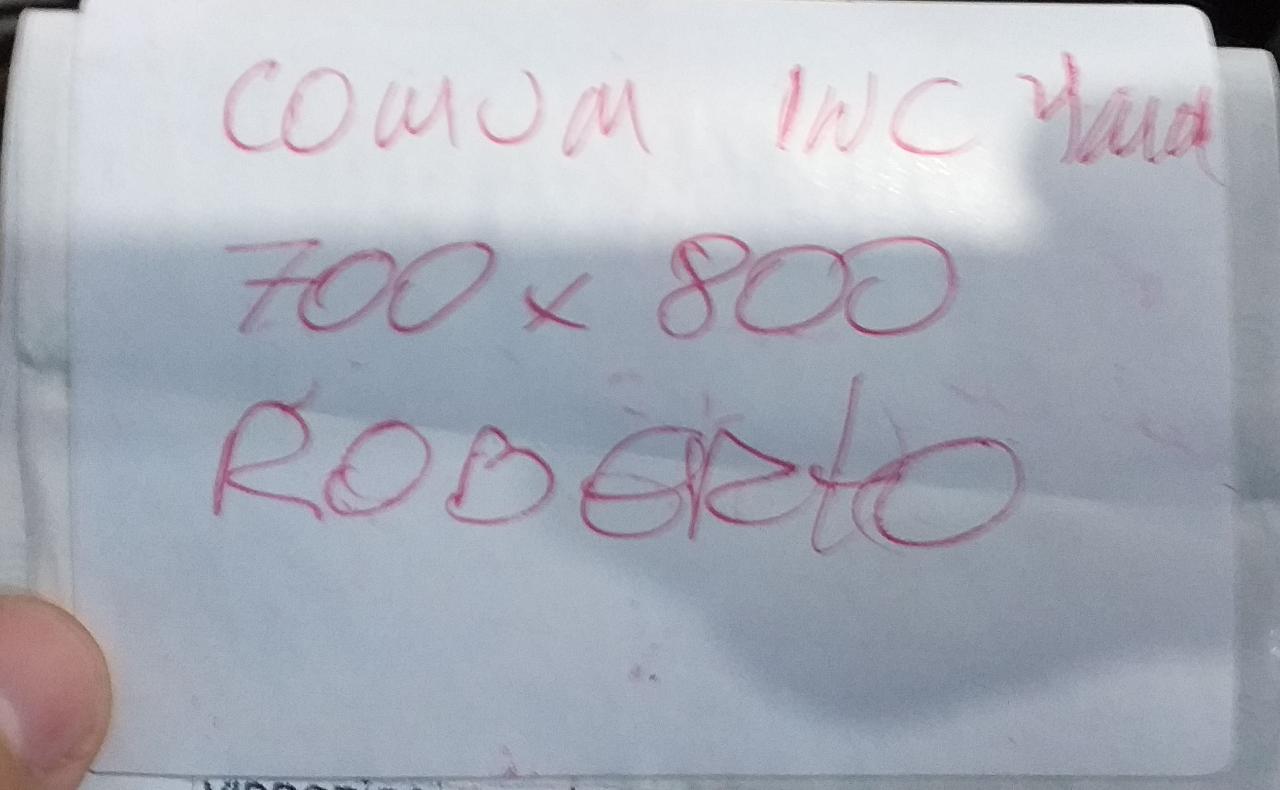 COMUM INC
700 x 800
ROBERTO